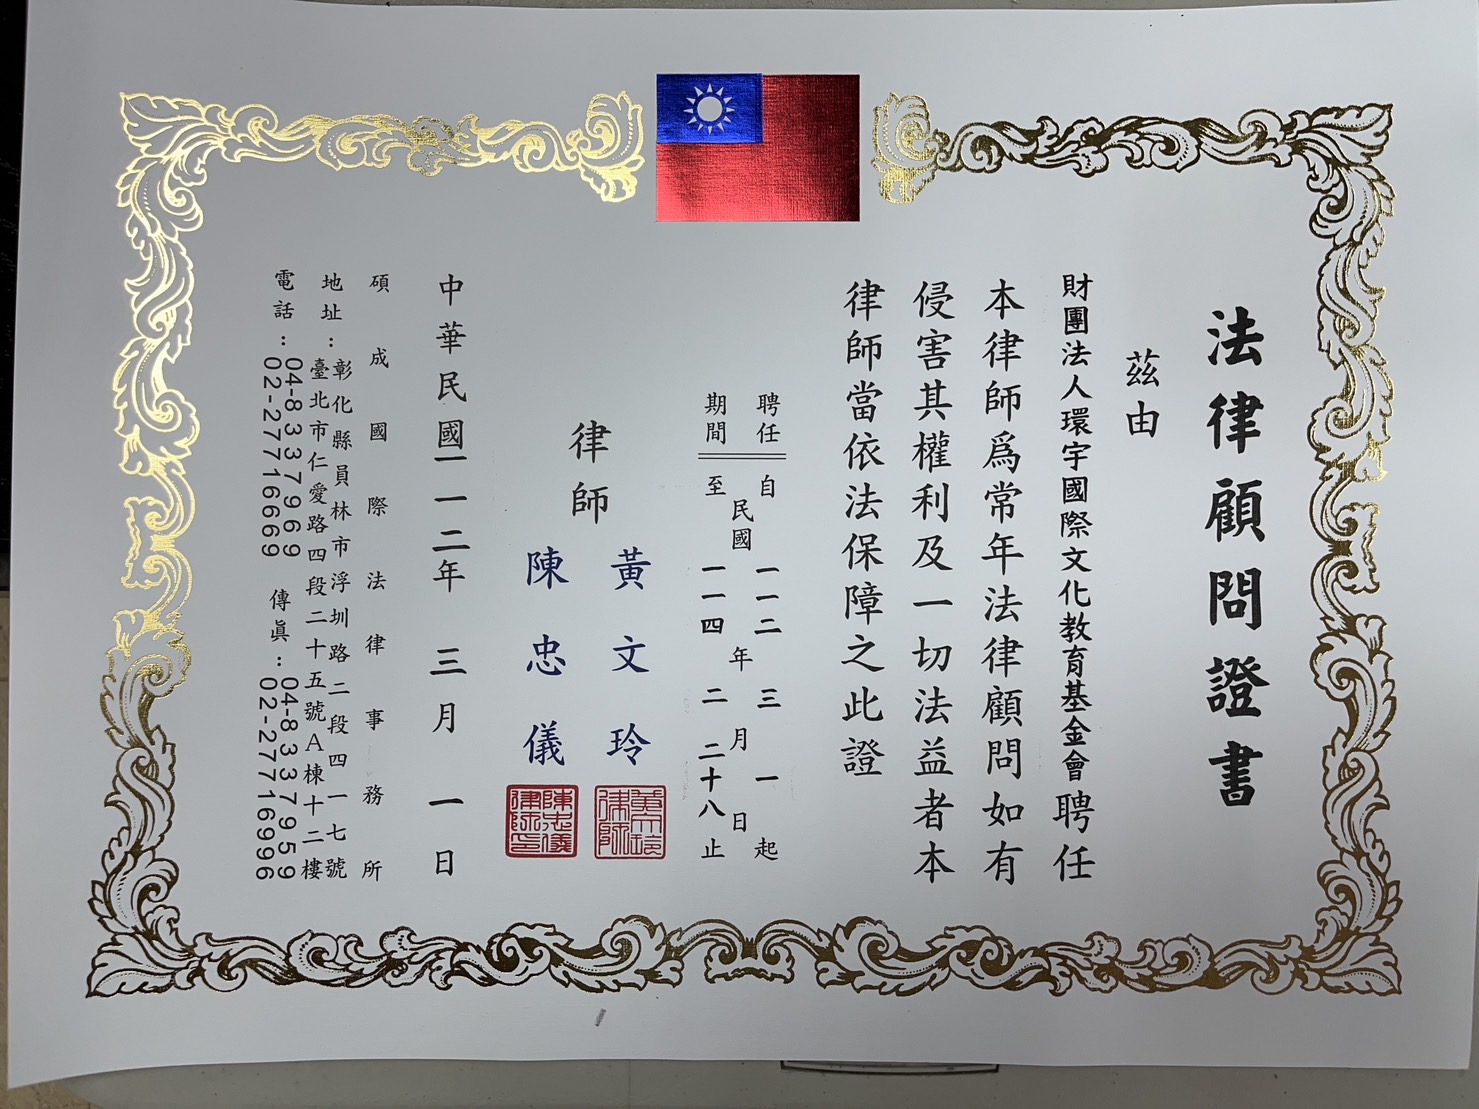 法律顧問證書
茲由
財團法人環宇國際文化教育基金會聘任
本律師爲常年法律顧問如有
侵害其權利及一切法益者本
律師當依法保障之此證
聘任期間
自民國一一二年三月一日起
至民國一一四年二月二十八日止
律師
黃文玲
陳忠儀
黃文玲律師
陳忠儀律師印
中華民國一一二年三月一日
碩成國際法律事務所
地址：彰化縣員林市浮圳路二段四一七號
臺北市仁愛路四段二十五號A棟十二樓
電話：04-8337969 傳眞：04-8337959
02-27716669 02-27716996